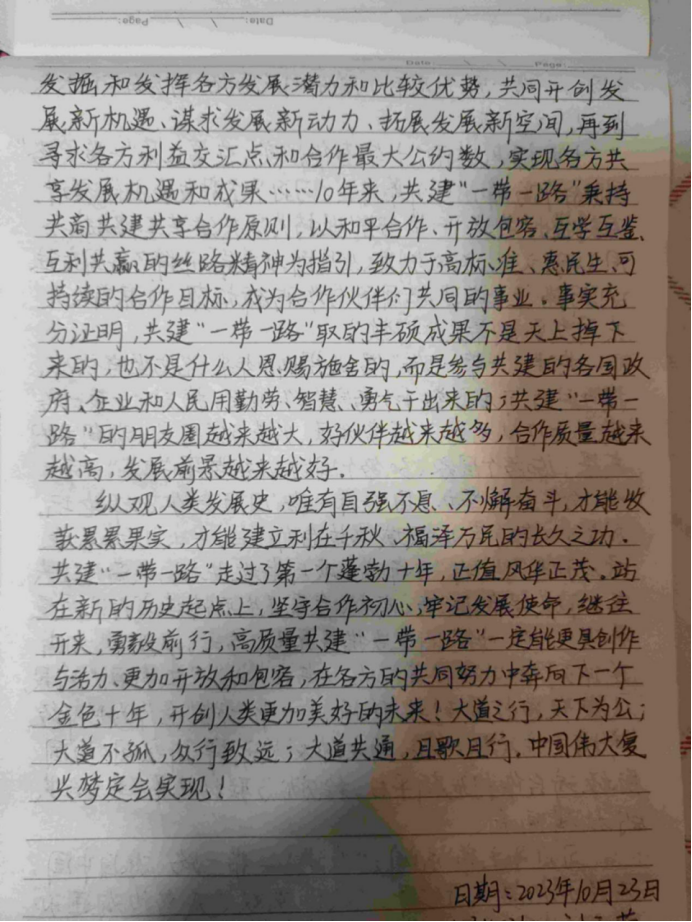 Date: Page:
Date Page
发掘和发挥各方发展潜力和比较优势,共同开创发
展新机遇、谋求发展新动力、拓展发展新空间,再到
寻求各方利益交汇点和合作最大公约数,实现各方共
享发展机遇和成果……10年来,共建“一带一路”秉持
共商共建共享合作原则,以和平合作、开放包容、互学互鉴、
互利共赢的丝路精神为指引,致力于高标准、惠民生、可
持续的合作目标,成为合作伙伴们共同的事业。事实充
分证明,共建“一带一路”取的丰硕成果不是天上掉下
来的,也不是什么人恩赐施舍的,而是参与共建的各国政
府、企业和人民用勤劳、智慧、勇气干出来的;共建“一带一
路”的朋友圈越来越大,好伙伴越来越多,合作质量越来
越高,发展前景越来越好。
纵观人类发展史,唯有自强不息、不懈奋斗,才能收
获累累果实,才能建立利在千秋、福泽万民的长久之功。
共建“一带一路”走过了第一个蓬勃十年,正值风华正茂。站
在新的历史起点上,坚守合作初心,牢记发展使命,继往
开来,勇毅前行,高质量共建“一带一路”一定能更具创作
与活力、更加开放和包容,在各方的共同努力中奔向下一个
金色十年,开创人类更加美好的未来!大道之行,天下为公;
大道不孤,众行致远;大道共通,且歌且行。中国伟大复
兴梦定会实现!
日期:2023年10月23日